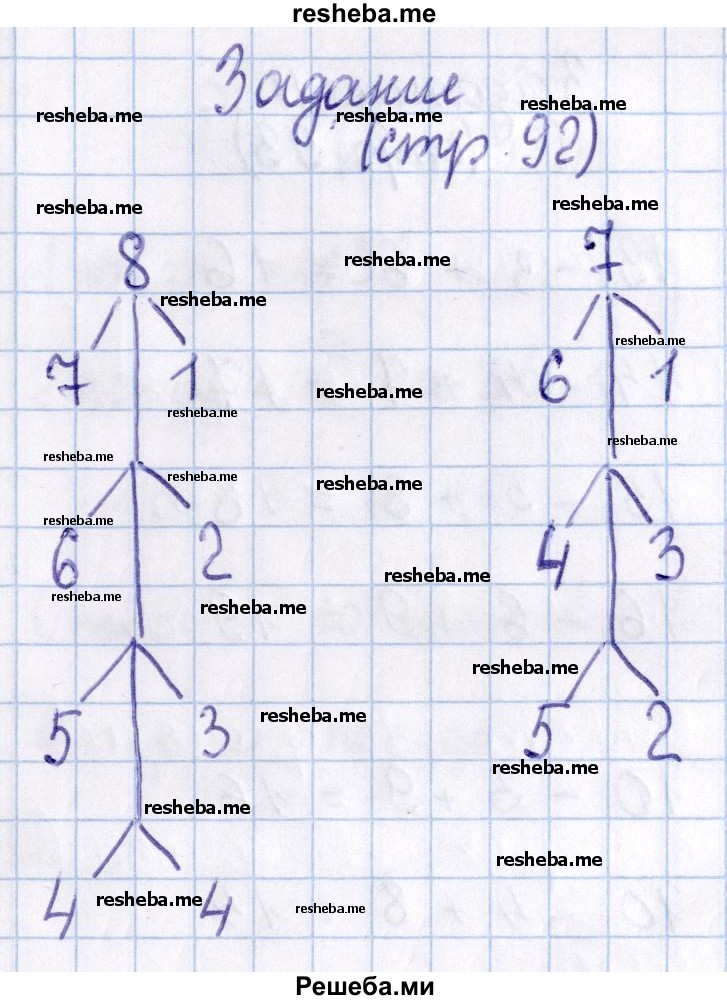 resheba.me
Задание
resheba.me resheba.me resheba.me
(стр. 92)
resheba.me resheba.me
8 7
resheba.me
resheba.me
resheba.me
7 1 6 1
resheba.me
resheba.me
resheba.me
resheba.me
resheba.me
resheba.me
resheba.me
6 2 4 3
resheba.me
resheba.me
resheba.me
resheba.me
5 3 5 2
resheba.me
resheba.me
resheba.me
resheba.me
4 4
resheba.me
resheba.me
Решеба.ми